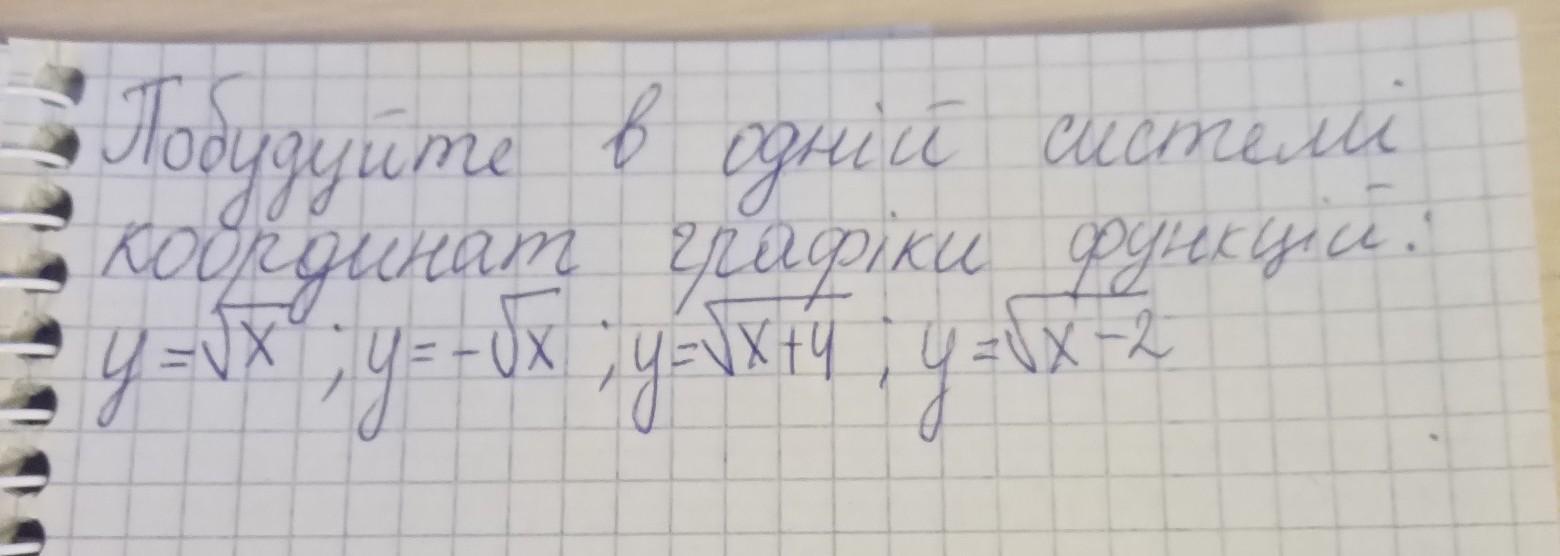 Побудуйте в одній системі
координат графіки функцій:
y = √x ; y = -√x ; y = √x+4 ; y = √x-2